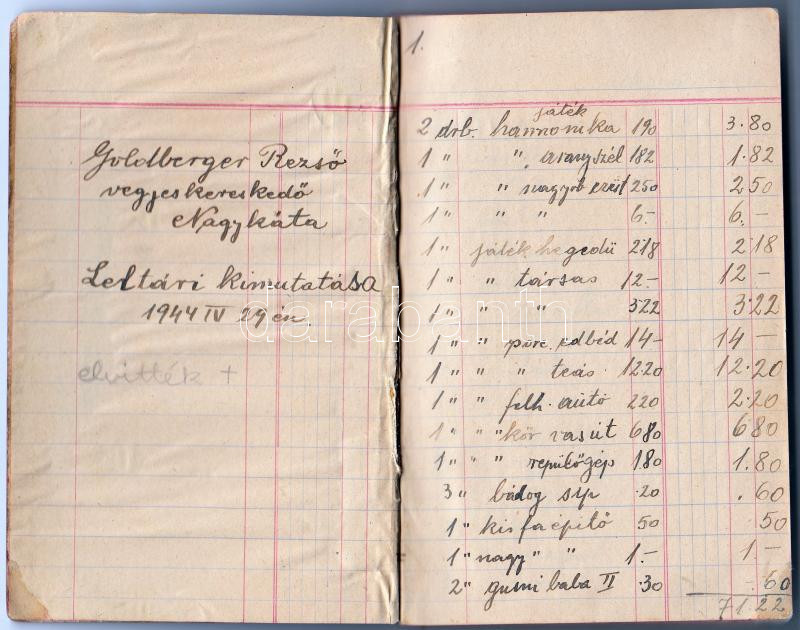 Goldberger Rezső
vegyeskereskedő
Nagykáta
Leltári kimutatása
1944 IV 29 én.
elvitték +
1.
játék
2 drb. harmonika 190 3.80
1 " " aranyszél 182 1.82
1 " " nagyob ezüst 250 2 50
1 " " " 6.- 6. -
1 " játék hegedű 218 2 18
1 " " társas 12.- 12 -
1 " " " 322 3.22
1 " " porc. edbéd 14- 14 -
1 " " " teás 12.20 12.20
1 " " felh. autó 220 2.20
1 " " " kör vasút 680 6 80
1 " " " repülőgép 1.80 1.80
3 " bádog sip .20 .60
1 " kis faépitő 50 50
1 " nagy " " 1.- 1 -
2 " gumi baba II .30 -.60
71.22
darabanth